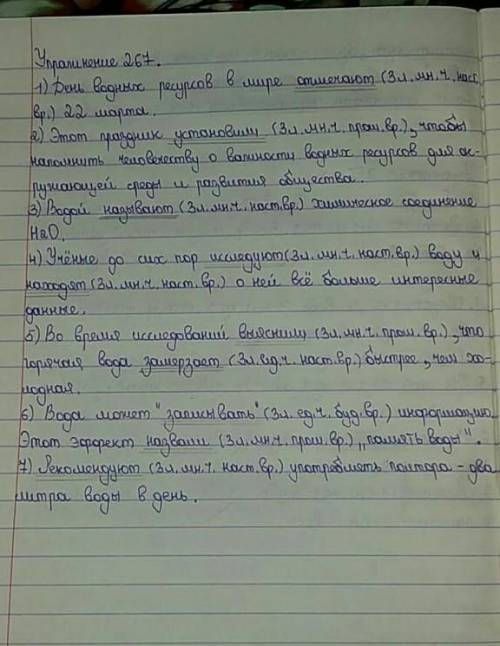 Упражнение 267.
1) День водных ресурсов в мире отмечают (3л.мн.ч. наст.
вр.) 22 марта.
2) Этот праздник установили (3л.мн.ч. прош.вр.), чтобы
напомнить человечеству о важности водных ресурсов для ок-
ружающей среды и развития общества.
3) Водой называют (3л.мн.ч. наст.вр.) химическое соединение
H2O.
4) Учёные до сих пор исследуют (3л.мн.ч. наст.вр.) воду и
находят (3л.мн.ч. наст.вр.) о ней всё больше интересные
данные.
5) Во время исследований выяснили (3л.мн.ч. прош.вр.), что
горячая вода замерзает (3л.ед.ч. наст.вр.) быстрее, чем хо-
лодная.
6) Вода может "записывать" (3л. ед.ч. буд.вр.) информацию.
Этот эффект назвали (3л.мн.ч. прош.вр.) „память воды".
7) Рекомендуют (3л.мн.ч. наст.вр.) употреблять полтора - два
литра воды в день.